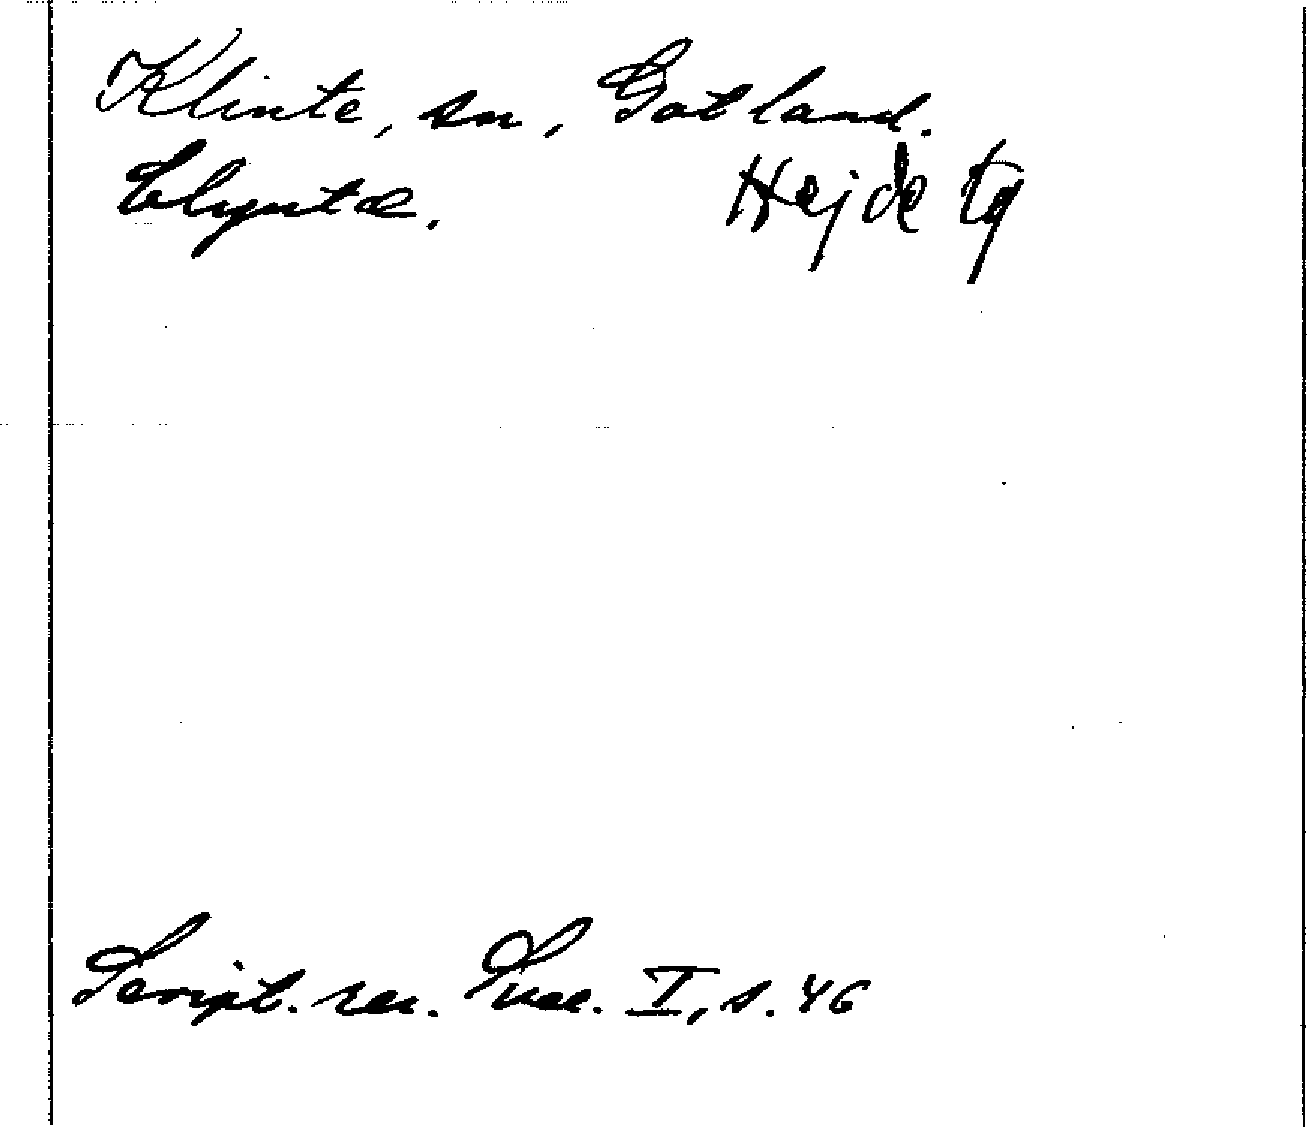 Klinte, sn, Gotland.
Clyntæ. Hejde tg
Script. rer. Suec. I, s. 46